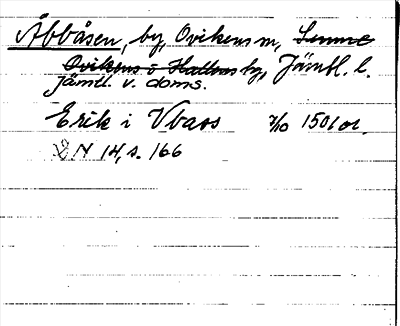 Åbbåsen, by, Ovikens sn, Sunne
Ovikens o Hallens tg, Jämtl. l.
Jämtl. v. doms.
Erik i Vbaos 7/10 1501 or.
N 14, s. 166